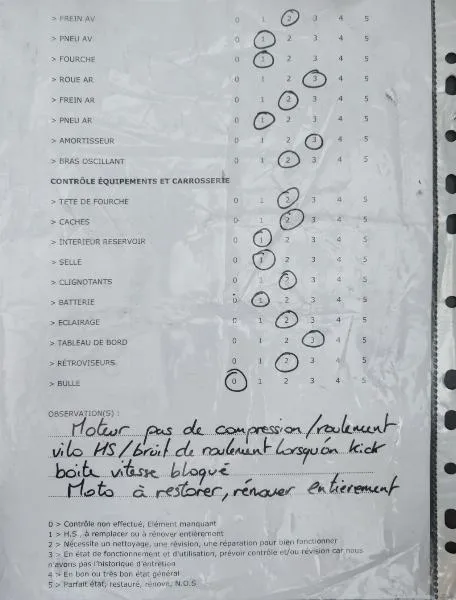 > FREIN AV 0 1 2 3 4 5
> PNEU AV 0 1 2 3 4 5
> FOURCHE 0 1 2 3 4 5
> ROUE AR 0 1 2 3 4 5
> FREIN AR 0 1 2 3 4 5
> PNEU AR 0 1 2 3 4 5
> AMORTISSEUR 0 1 2 3 4 5
> BRAS OSCILLANT 0 1 2 3 4 5
CONTRÔLE ÉQUIPEMENTS ET CARROSSERIE
> TETE DE FOURCHE 0 1 2 3 4 5
> CACHES 0 1 2 3 4 5
> INTERIEUR RESERVOIR 0 1 2 3 4 5
> SELLE 0 1 2 3 4 5
> CLIGNOTANTS 0 1 2 3 4 5
> BATTERIE 0 1 2 3 4 5
> ECLAIRAGE 0 1 2 3 4 5
> TABLEAU DE BORD 0 1 2 3 4 5
> RÉTROVISEURS 0 1 2 3 4 5
> BULLE 0 1 2 3 4 5
OBSERVATION(S) :
Moteur pas de compression/roulement
vilo HS/bruit de roulement lorsqu'on kick
boite vitesse bloqué
Moto à restorer, rénover entièrement
0 > Contrôle non effectué, Elément manquant
1 > H.S., à remplacer ou à rénover entièrement
2 > Nécessite un nettoyage, une révision, une réparation pour bien fonctionner
3 > En état de fonctionnement et d'utilisation, prévoir contrôle et/ou révision car nous
n'avons pas l'historique d'entretien
4 > En bon ou très bon état général
5 > Parfait état, restauré, rénové, N.O.S